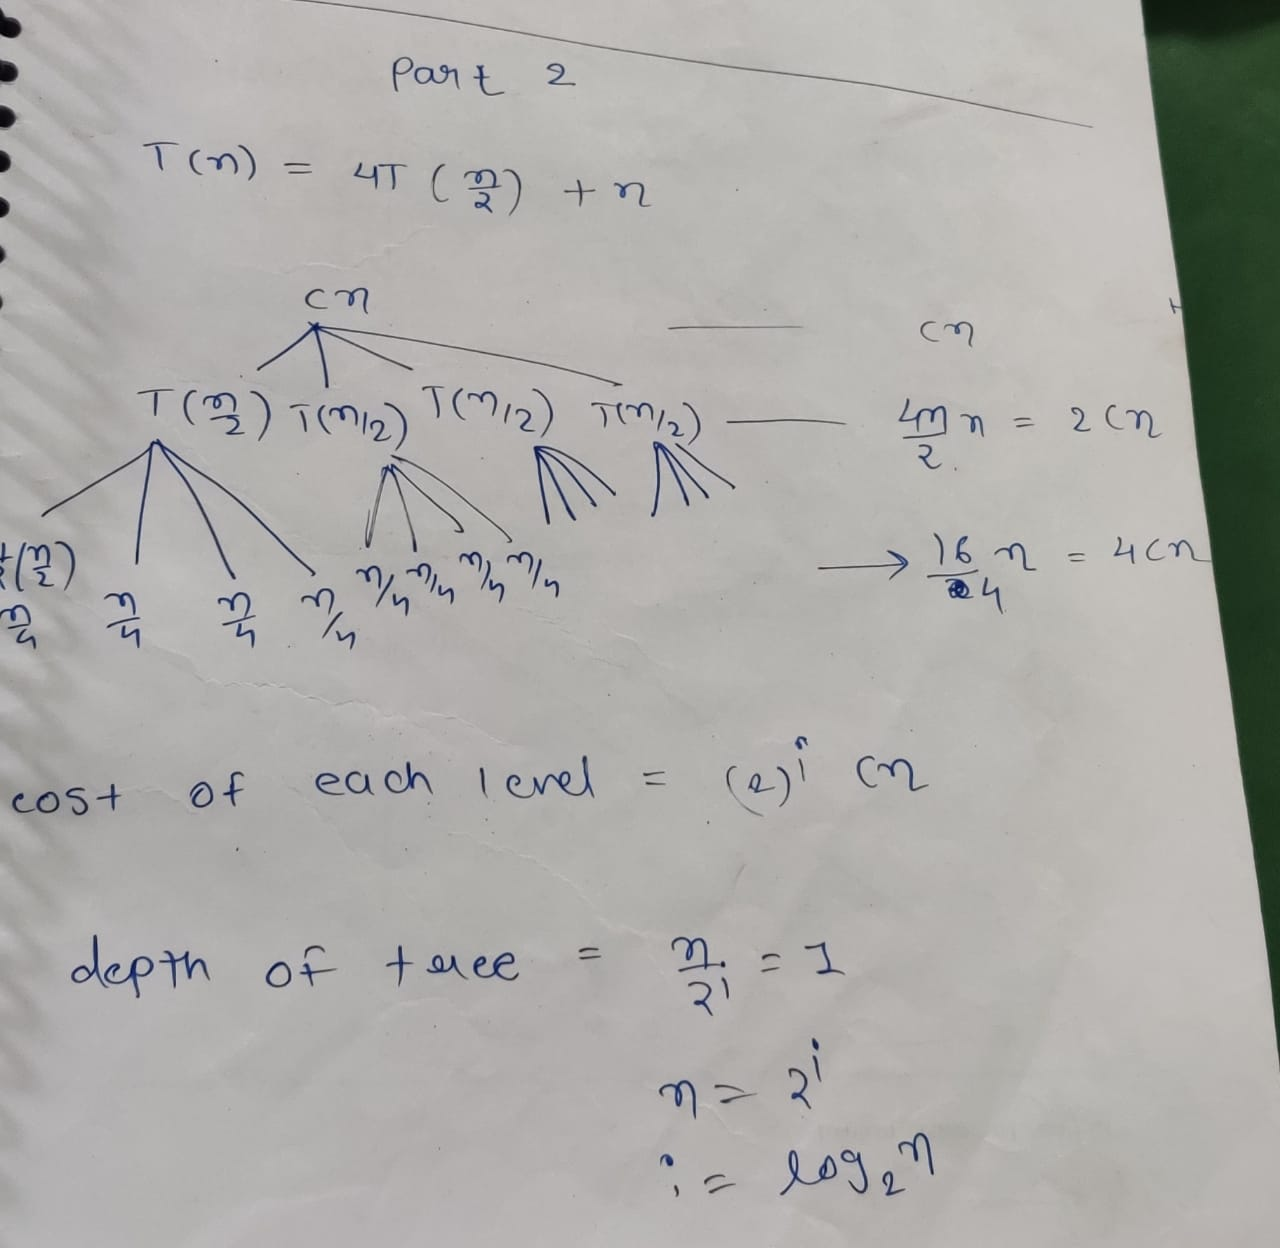 Part 2
T(n) = 4T (n/2) + n
cn — cn
T(n/2) T(n/2) T(n/2) T(n/2) — n = 2cn
n/4 n/4 n/4 n/4 n/4 n/4 n/4 n/4 → 16/4 n = 4cn
cost of each level = (2)^i cn
depth of tree = n/2^i = 1
n = 2^i
i = log₂n